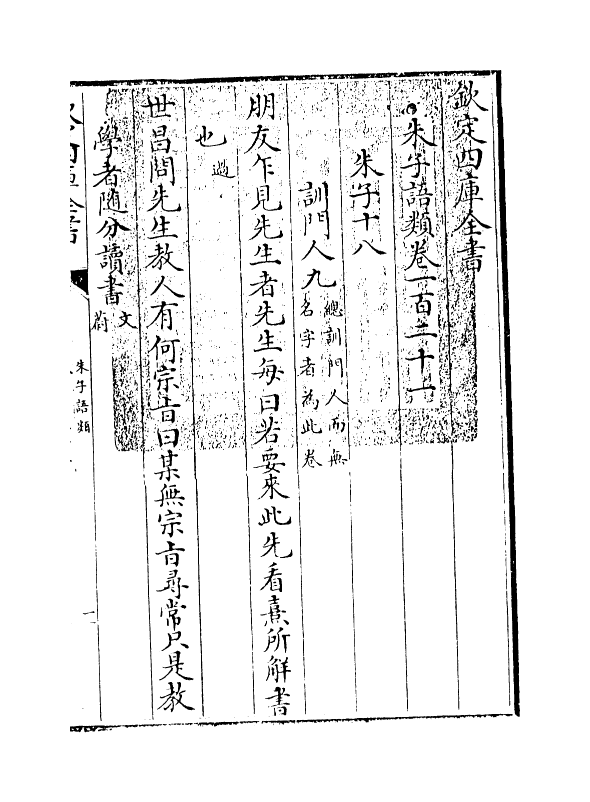 欽定四庫全書
朱子語類卷一百二十一
朱子十八
訓門人九總訓門人而無名字者為此卷
朋友乍見先生者先生每曰若要來此先看熹所解書
也過
世昌問先生教人有何宗旨曰某無宗旨尋常只是教
學者隨分讀書文蔚
朱子語類
一